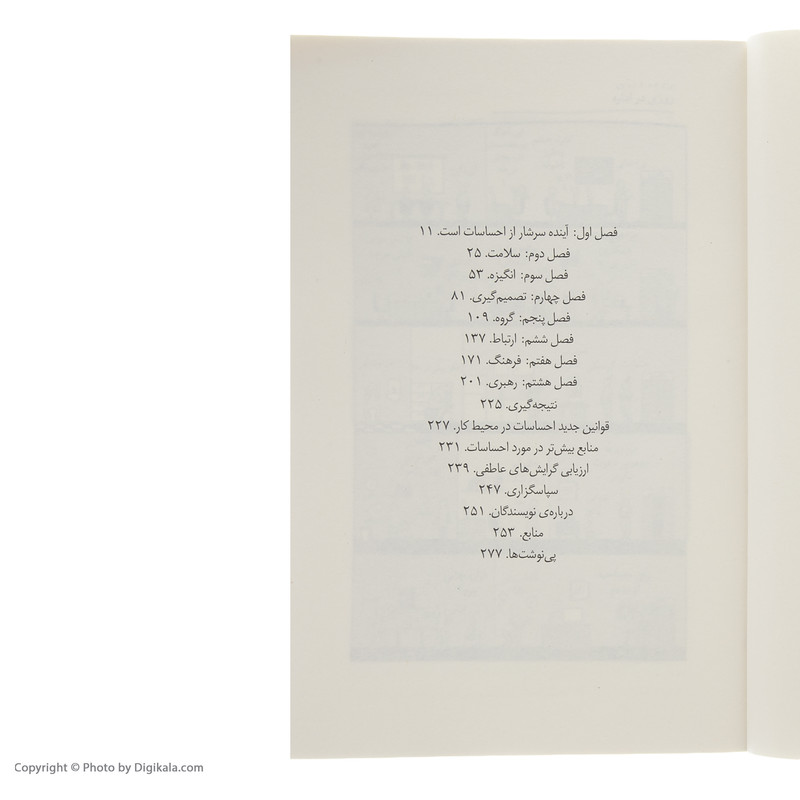 فصل اول: آینده سرشار از احساسات است. ۱۱
فصل دوم: سلامت. ۲۵
فصل سوم: انگیزه. ۵۳
فصل چهارم: تصمیم‌گیری. ۸۱
فصل پنجم: گروه. ۱۰۹
فصل ششم: ارتباط. ۱۳۷
فصل هفتم: فرهنگ. ۱۷۱
فصل هشتم: رهبری. ۲۰۱
نتیجه‌گیری. ۲۲۵
قوانین جدید احساسات در محیط کار. ۲۲۷
منابع بیش‌تر در مورد احساسات. ۲۳۱
ارزیابی گرایش‌های عاطفی. ۲۳۹
سپاسگزاری. ۲۴۷
درباره‌ی نویسندگان. ۲۵۱
منابع. ۲۵۳
پی‌نوشت‌ها. ۲۷۷
Copyright © Photo by Digikala.com